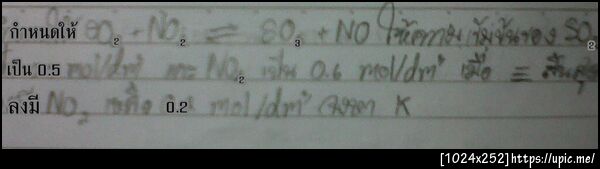 กำหนดให้ SO₂ + NO₂ ⇌ SO₃ + NO ให้ความเข้มข้นของ SO₂
เป็น 0.5 mol/dm³ และ NO₂ เป็น 0.6 mol/dm³ เมื่อ
ลงมี NO₂ เหลือ 0.2 mol/dm³ จงหา K
[1024x252]https://upic.me/